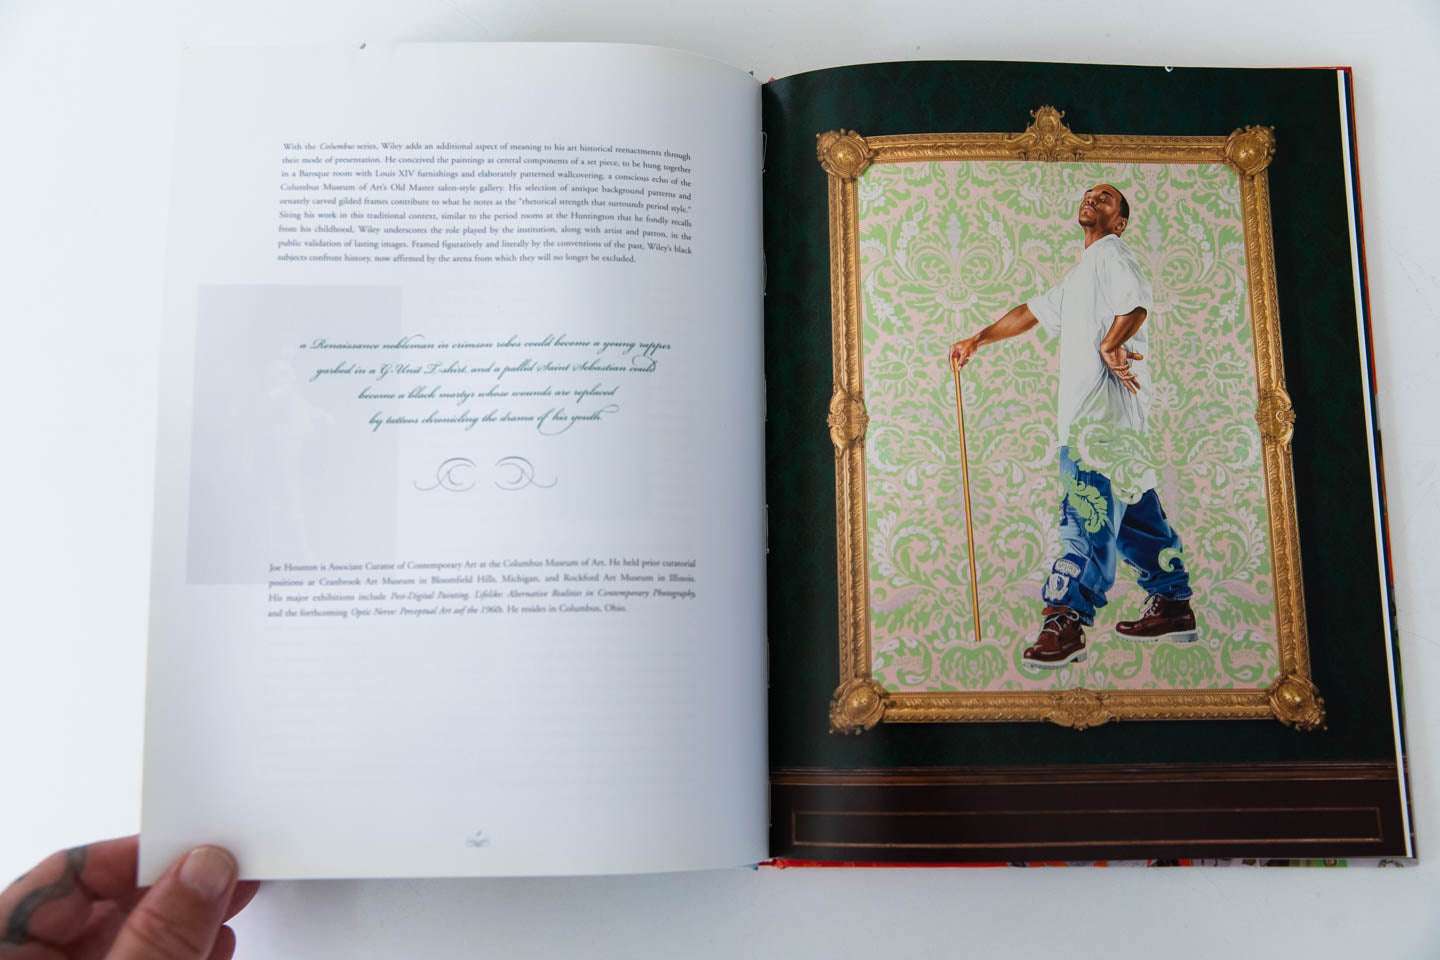 With the Columbus series, Wiley adds an additional aspect of meaning to his art historical reenactments through
their mode of presentation. He conceived the paintings as central components of a set piece, to be hung together
in a Baroque room with Louis XIV furnishings and elaborately patterned wallcovering, a conscious echo of the
Columbus Museum of Art's Old Master salon-style gallery. His selection of antique background patterns and
ornately carved gilded frames contribute to what he notes as the "rhetorical strength that surrounds period style."
Siting his work in this traditional context, similar to the period rooms at the Huntington that he fondly recalls
from his childhood, Wiley underscores the role played by the institution, along with artist and patron, in the
public validation of lasting images. Framed figuratively and literally by the conventions of the past, Wiley's black
subjects confront history, now affirmed by the arena from which they will no longer be excluded.
a Renaissance nobleman in crimson robes could become a young rapper
garbed in a G-Unit T-shirt, and a pallid Saint Sebastian could
become a black martyr whose wounds are replaced
by tattoos chronicling the drama of his youth.
Joe Houston is Associate Curator of Contemporary Art at the Columbus Museum of Art. He held prior curatorial
positions at Cranbrook Art Museum in Bloomfield Hills, Michigan, and Rockford Art Museum in Illinois.
His major exhibitions include Post-Digital Painting, Lifelike: Alternative Realities in Contemporary Photography,
and the forthcoming Optic Nerve: Perceptual Art of the 1960s. He resides in Columbus, Ohio.